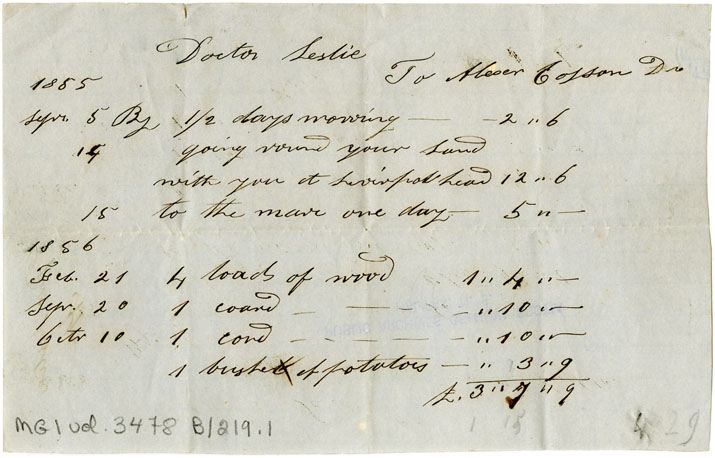 Doctor Leslie
To Alexr Cosson Dr
1855
Sepr. 5 By 1/2 days mowing — - 2 " 6
14 going round your land
with you at Liverpol head 12 " 6
15 to the mare one day — 5 " —
1856
Feb. 21 4 loads of wood 1 " 4 " —
Sepr. 20 1 coard — - - - " 10 " —
Octr 10 1 cord — - - - " 10 " —
1 bushel of potatoes — " 3 " 9
£. 3 " 7 " 9
MG1 vol. 3478 B/219.1
1 15
4 29